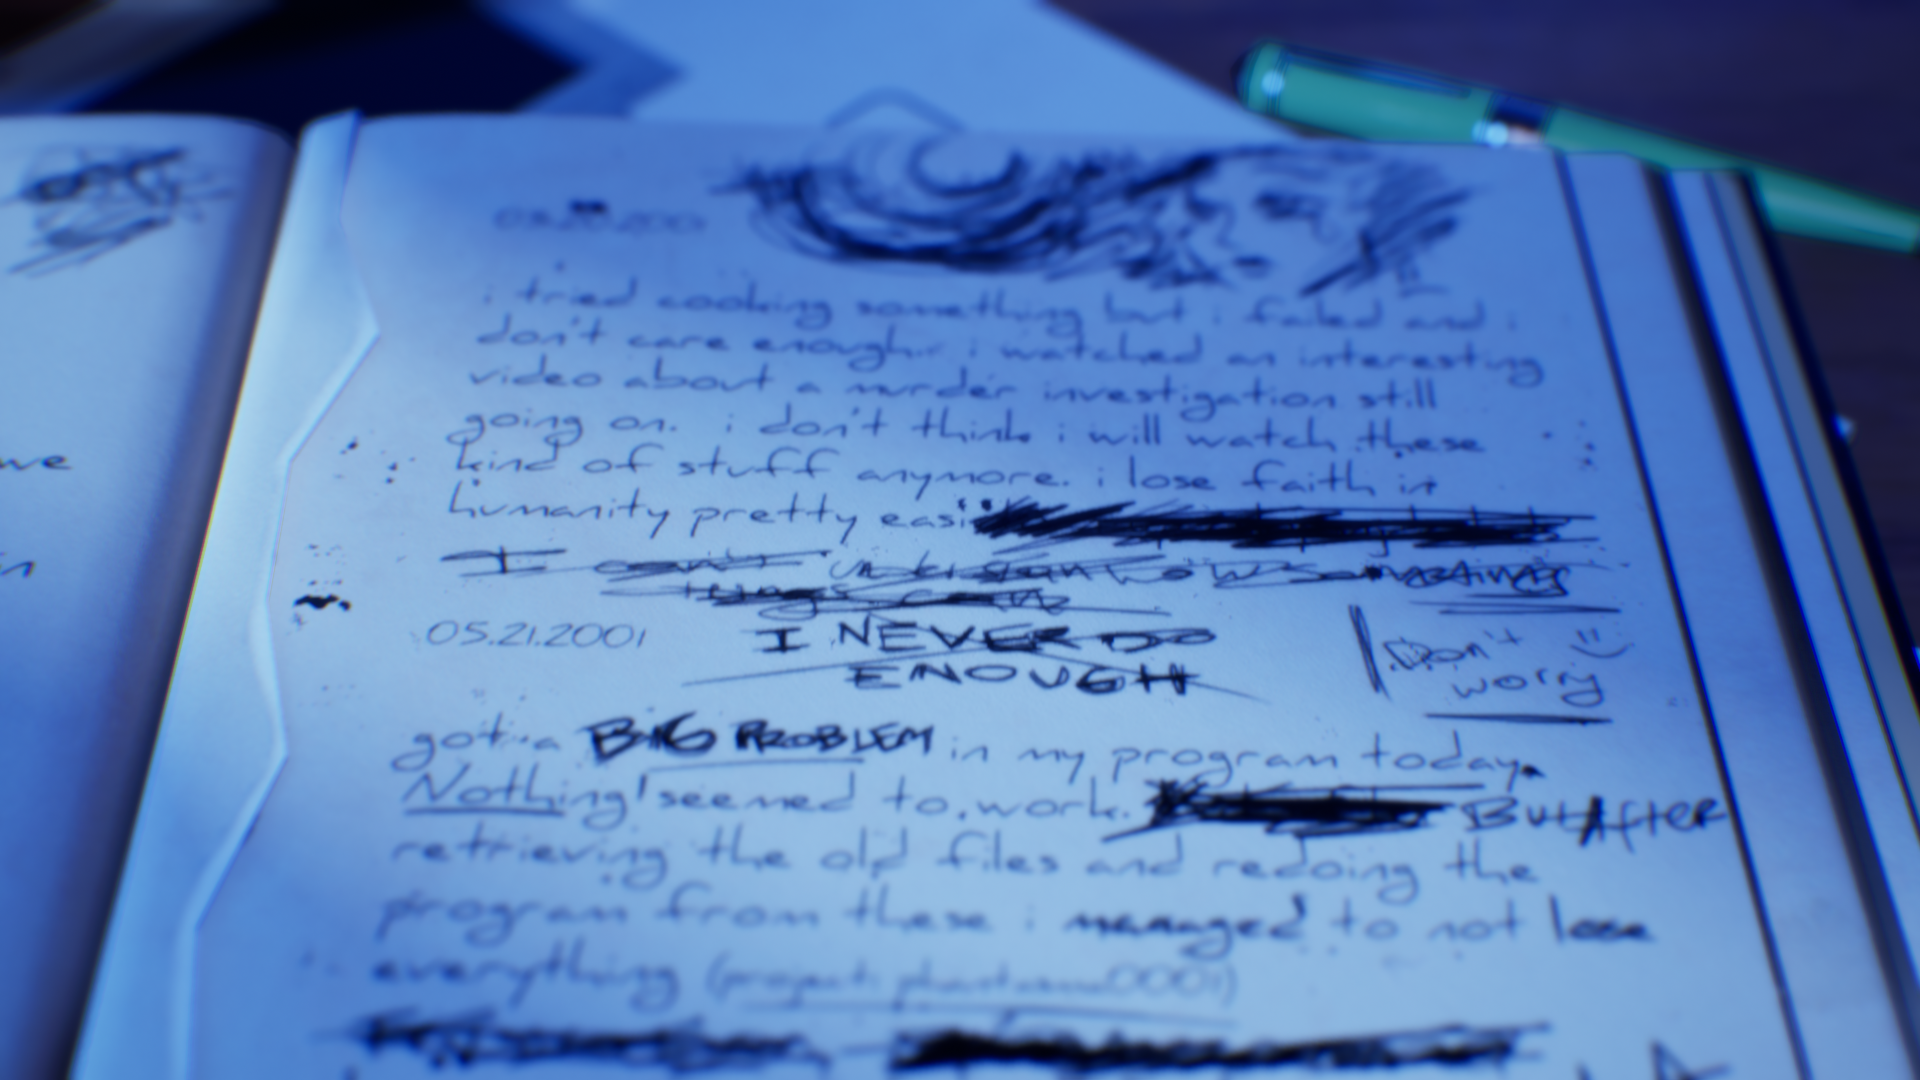 we
in
i tried cooking something but i failed and i
don't care enough.. i watched an interesting
video about a murder investigation still
going on. i don't think i will watch these
kind of stuff anymore. i lose faith in
humanity pretty easi
I can't understand how sometimes
things can
05.21.2001
I NEVER DO
ENOUGH
Don't :)
worry
got a BIG PROBLEM in my program today.
Nothing! seemed to work. But After
retrieving the old files and redoing the
program from these i managed to not lose
everything (project: phantasma0001)